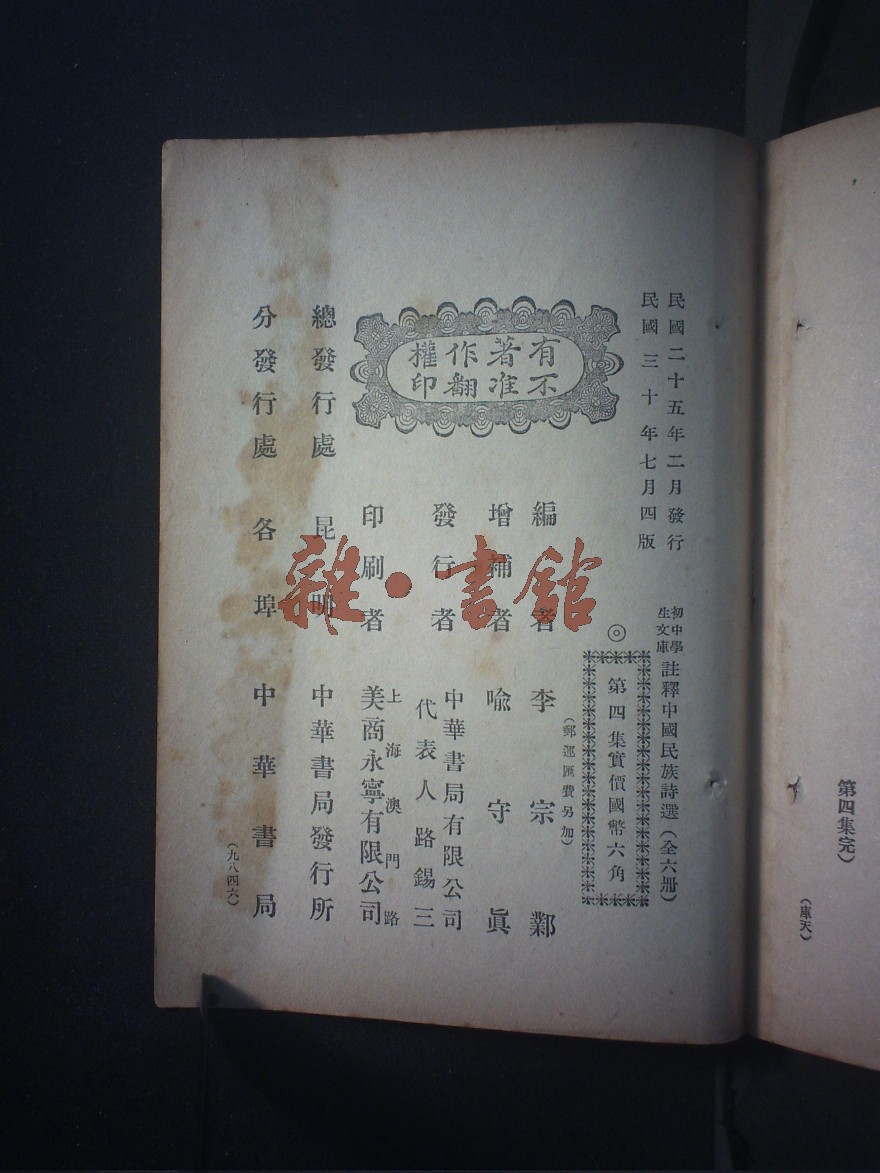 民國二十五年二月發行
民國三十年七月四版
初中學
生文庫
註釋中國民族詩選（全六册）
◎
第四集實價國幣六角
（郵運匯費另加）
有著作權
不准翻印
編者 李宗鄴
增補者 喻守眞
發行者 中華書局有限公司
代表人路錫三
印刷者 上海澳門路
美商永寧有限公司
總發行處 昆明 中華書局發行所
分發行處 各埠 中華書局
（九八四六）
第四集完）
（庫天）
雜·書館